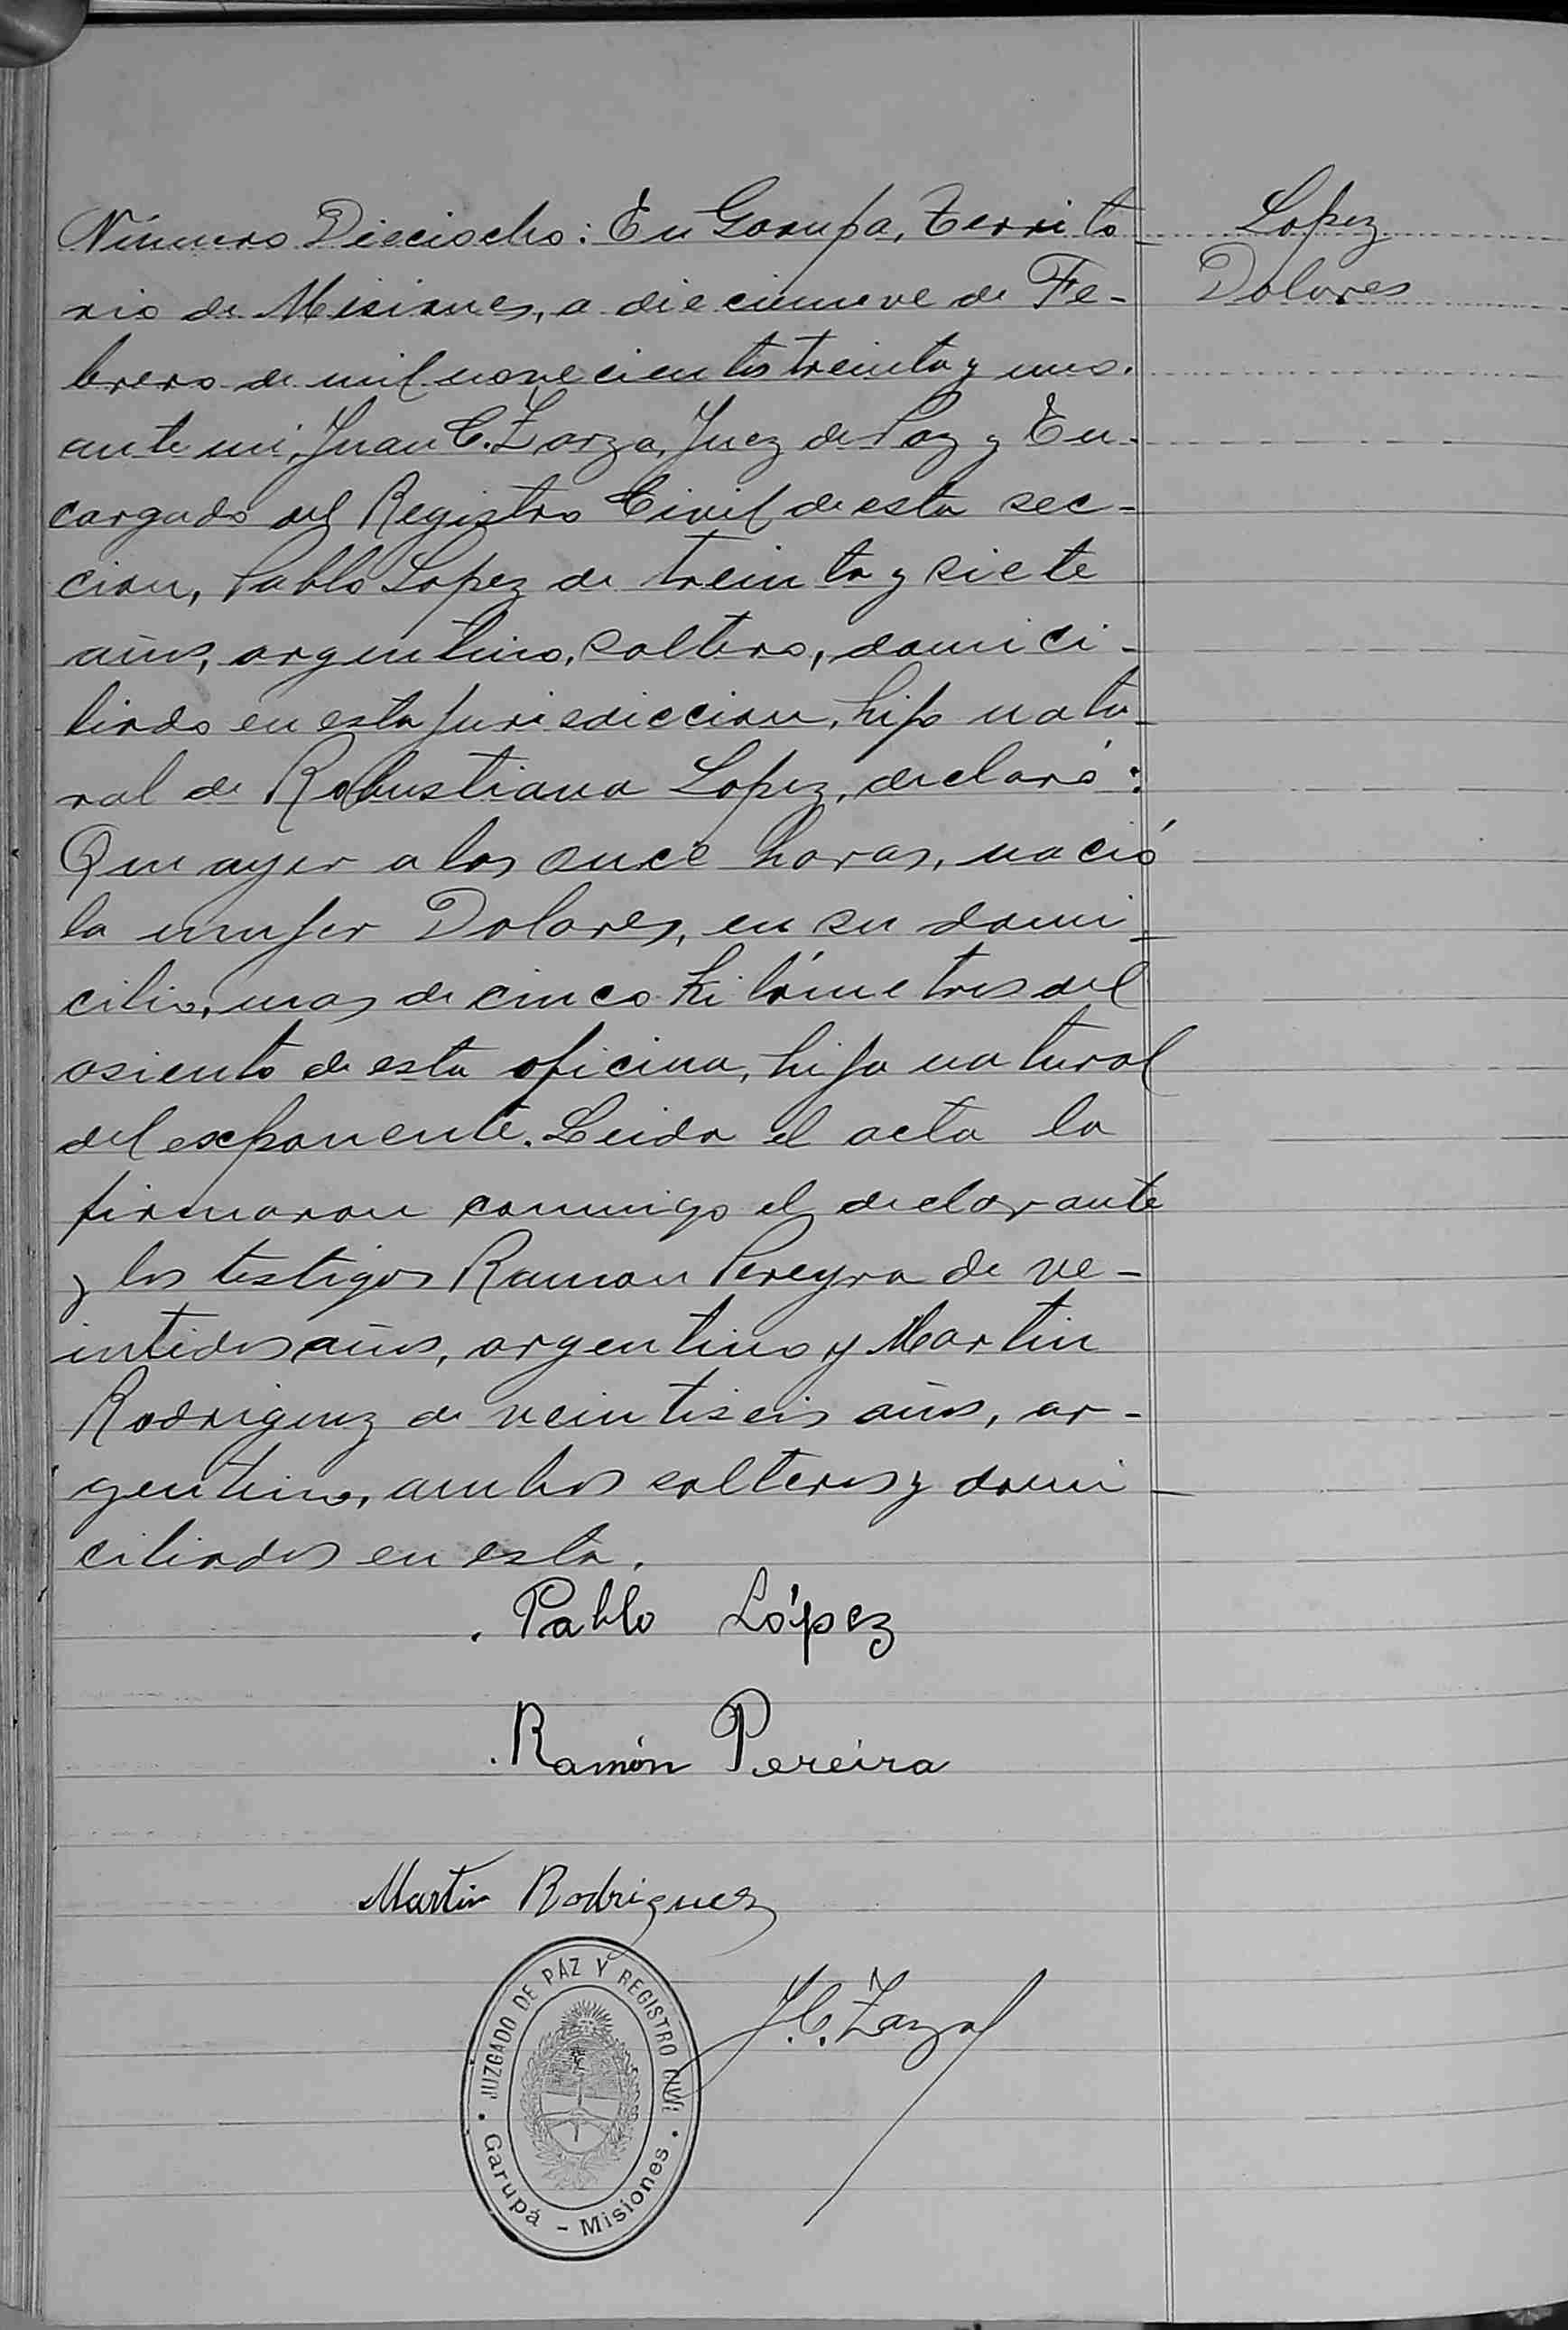 Número Dieciocho: En Garupa, Territo-
rio de Misiones, a diecinueve de Fe-
brero de mil novecientos treinta y uno.
ante mi, Juan C. Zarza, Juez de Paz y En-
cargado del Registro Civil de esta sec-
cion, Pablo Lopez de treinta y siete
años, argentino, soltero, domici-
liado en esta jurisdiccion, hijo natu-
ral de Robustiana Lopez, declaró:
Que ayer a las once horas, nació
la mujer Dolores, en su domi-
cilio, mas de cinco kilómetros del
asiento de esta oficina, hija natural
del exponente. Leida el acta la
firmaron conmigo el declarante
y los testigos Ramon Pereyra de ve-
intidos años, argentino y Martin
Rodriguez de veintiseis años, ar-
gentino, ambos solteros y domi-
ciliados en esta.
Lopez
Dolores
Pablo López
Ramón Pereira
Martin Rodriguez
J. C. Zarza
JUZGADO DE PAZ Y REGISTRO CIVIL
Garupá - Misiones